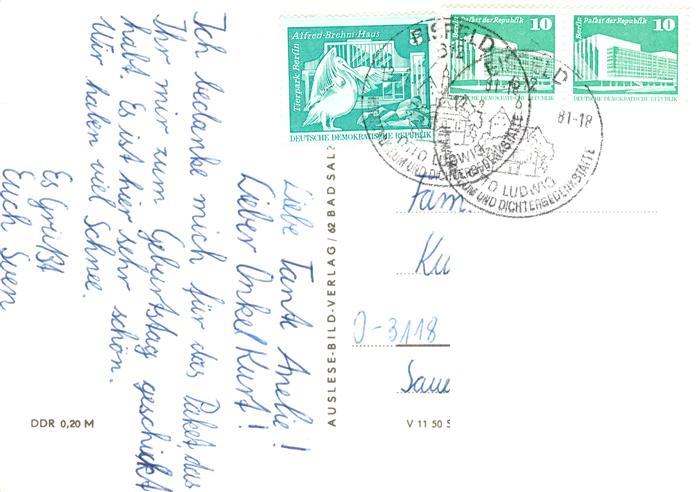 Liebe Tante Anelie!
Lieber Onkel Kurt!
Ich bedanke mich für das Paket, das
Ihr mir zum Geburtstag geschickt
habt. Es ist hier sehr schön.
Wir haben viel Schnee.
Es Grüßt
Euch Sven
DDR 0,20 M
AUSLESE-BILD-VERLAG / 62 BAD SALZ
V 11 50
Alfred-Brehm-Haus
Tierpark Berlin
DEUTSCHE DEMOKRATISCHE REPUBLIK
Berlin Palast der Republik 10
DEUTSCHE DEMOKRATISCHE REPUBLIK
Berlin Palast der Republik 10
DEUTSCHE DEMOKRATISCHE REPUBLIK
EISFELD
OTTO LUDWIG
MUSEUM UND DICHTERGEDENKSTÄTTE
EISFELD
81-18
OTTO LUDWIG
MUSEUM UND DICHTERGEDENKSTÄTTE
Fam.
Ku
O-3118
Saue